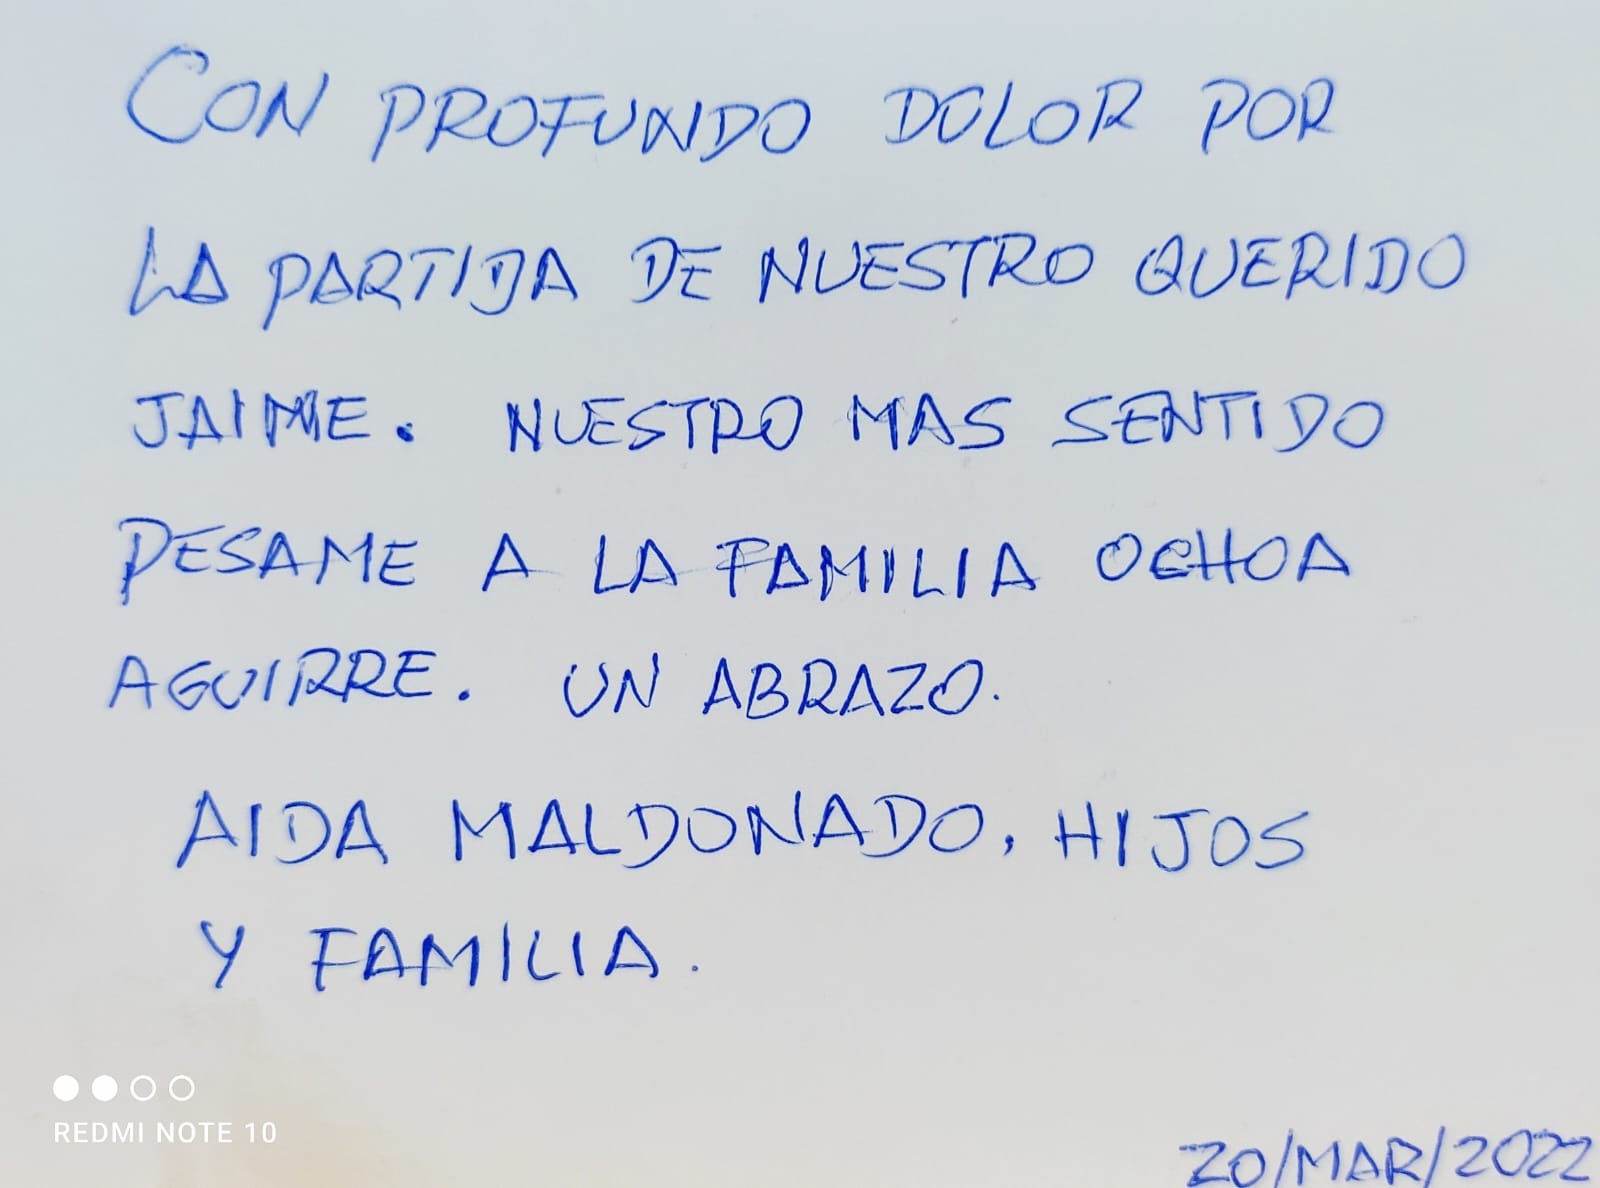 CON PROFUNDO DOLOR POR
LA PARTIDA DE NUESTRO QUERIDO
JAIME. NUESTRO MAS SENTIDO
PESAME A LA FAMILIA OCHOA
AGUIRRE. UN ABRAZO.
AIDA MALDONADO, HIJOS
Y FAMILIA.
REDMI NOTE 10
20/MAR/2022